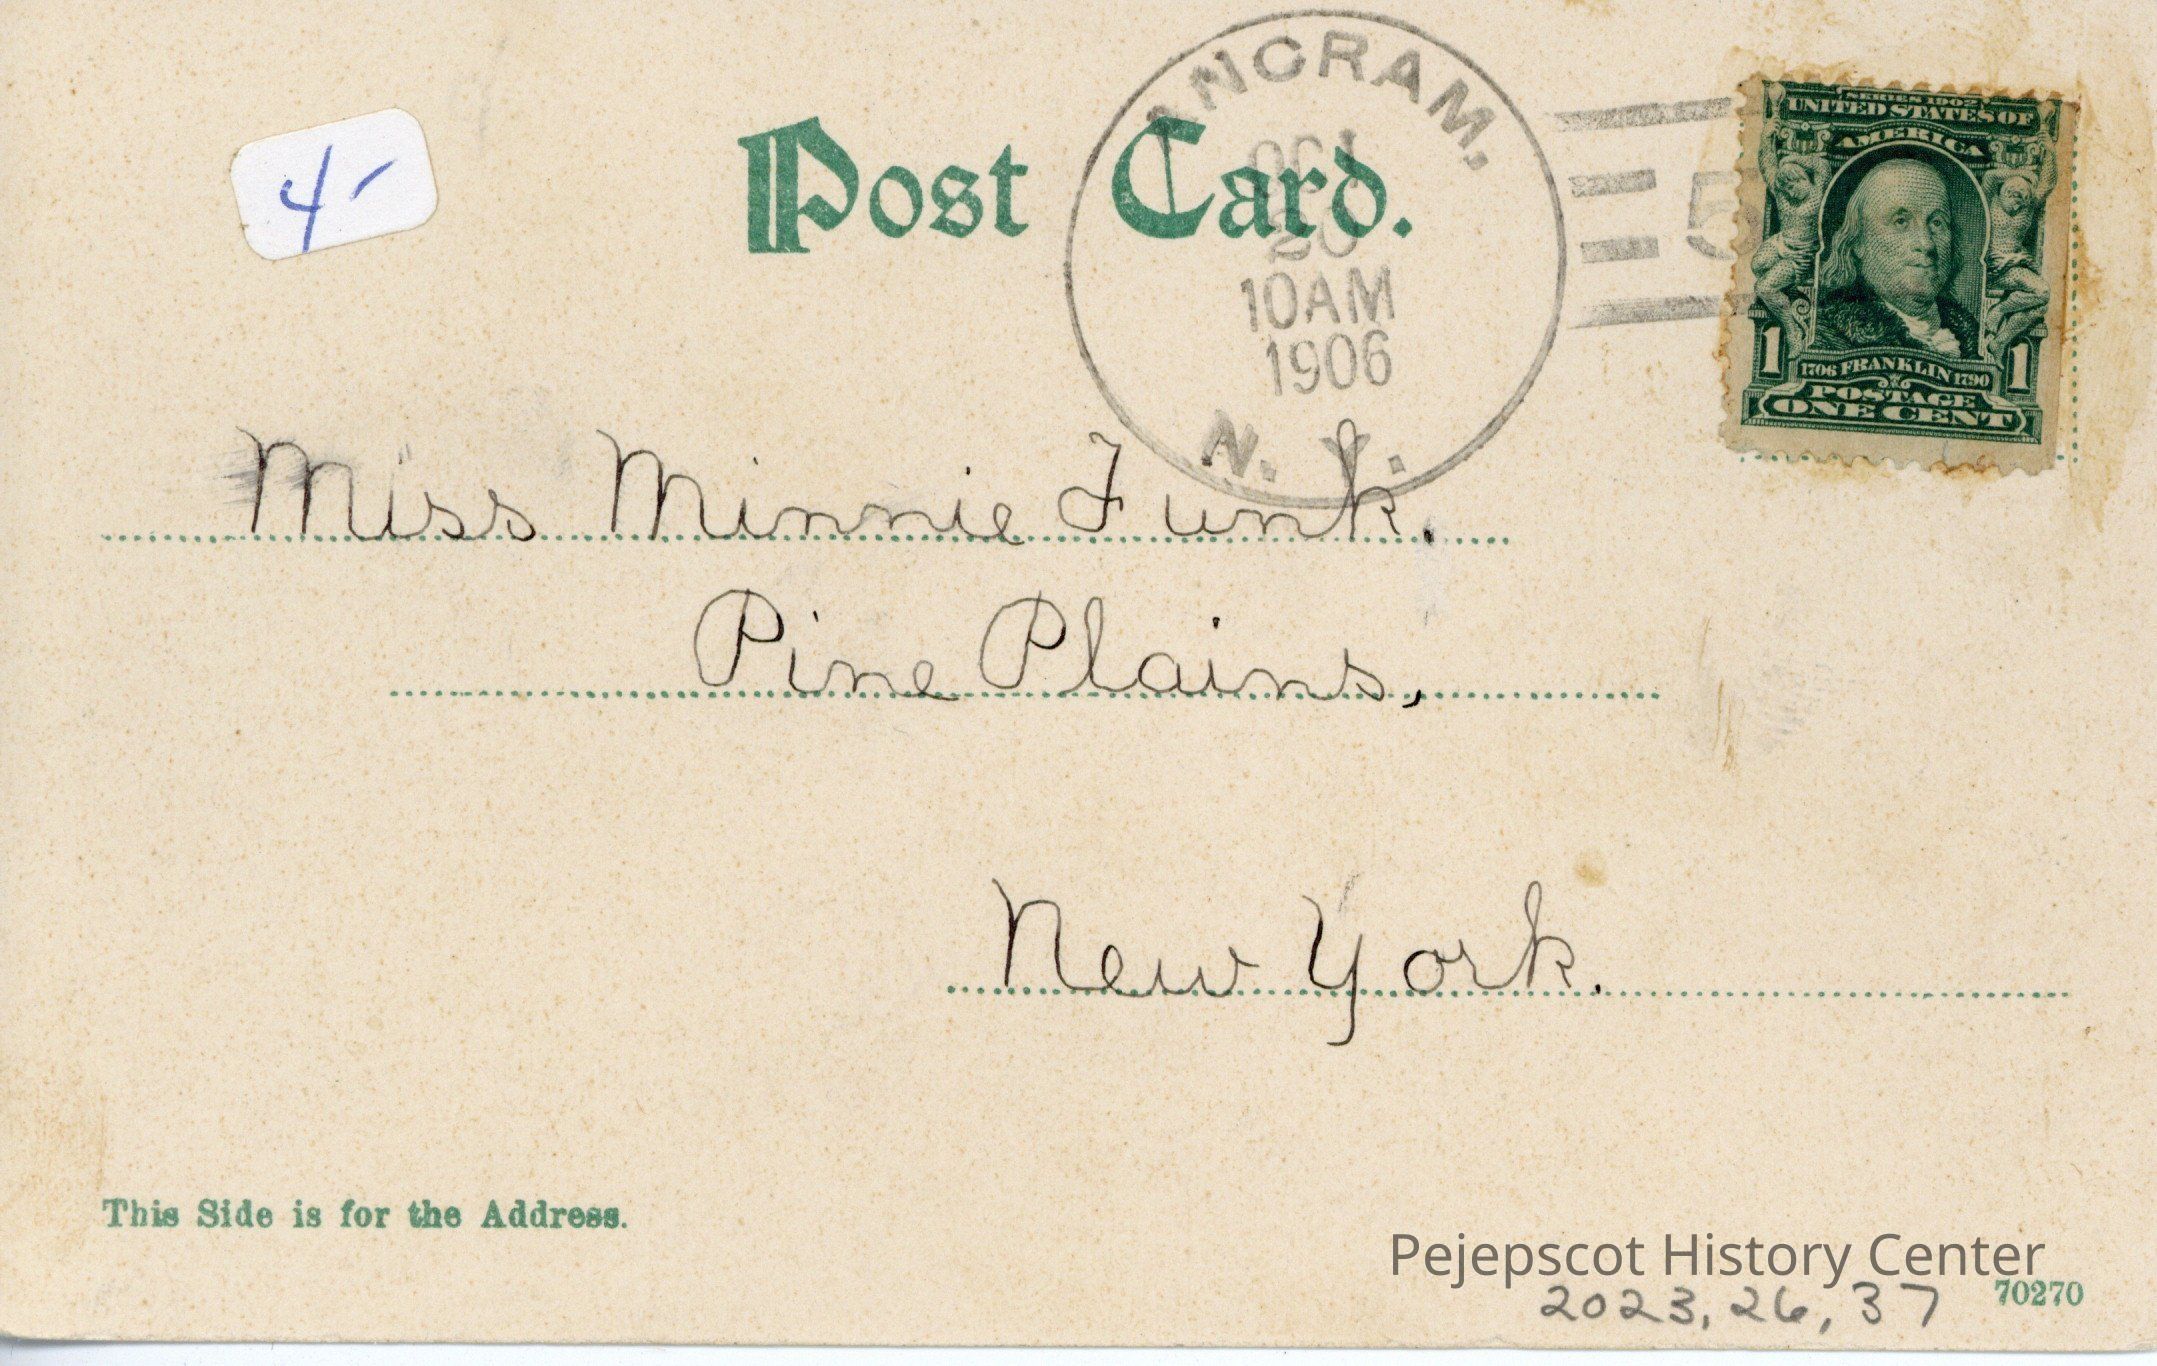 4-
Post Card.
ANCRAM,
OCT
20
10AM
1906
N. Y.
5
SERIES 1902
UNITED STATES OF
AMERICA
1706 FRANKLIN 1790
1 1
POSTAGE
ONE CENT
Miss Minnie Funk.
Pine Plains,
New York.
This Side is for the Address.
Pejepscot History Center
70270
2023.26.37